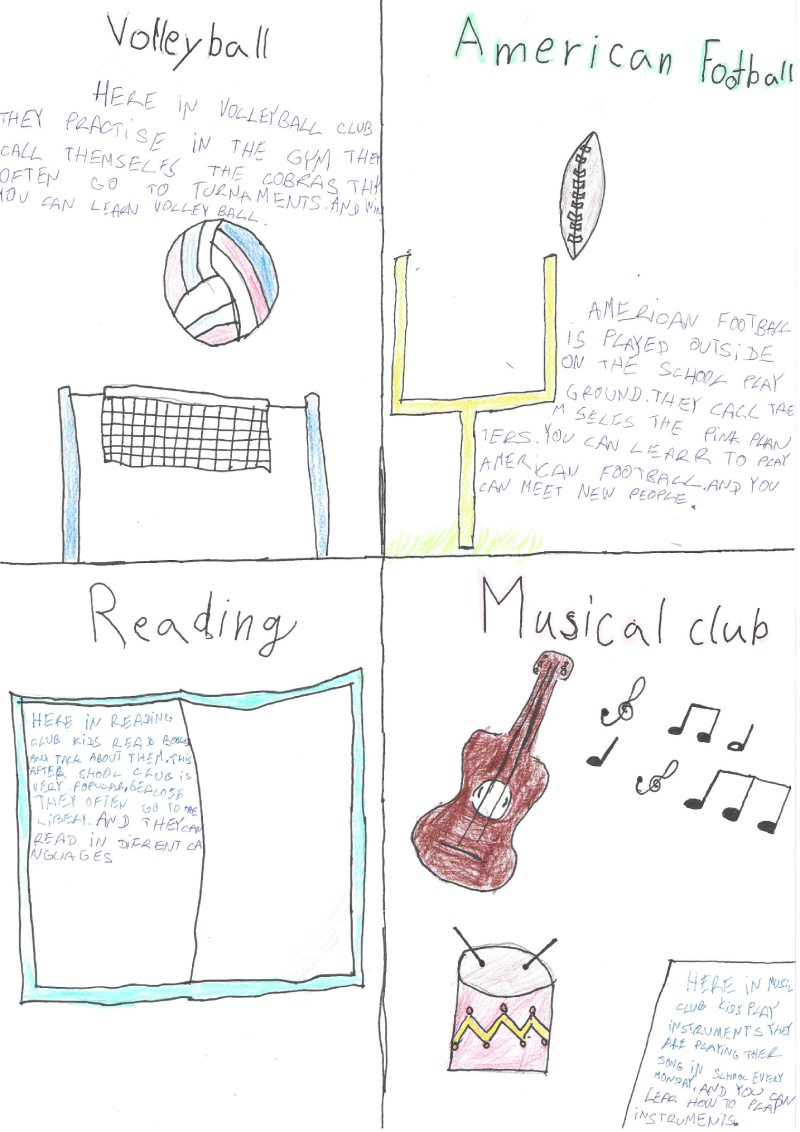 Volleyball
HERE IN VOLLEYBALL CLUB
THEY PRACTISE IN THE GYM THEY
CALL THEMSELFS THE COBRAS THY
OFTEN GO TO TURNAMENTS. AND
YOU CAN LEARN VOLLEY BALL.
American Football
AMERICAN FOOTBALL
IS PLAYED OUTSIDE
ON THE SCHOOL PLAY
GROUND. THEY CALL THE
M SELFS THE PINK PLAN
TERS. YOU CAN LEARR TO PLAY
AMERICAN FOOTBALL. AND YOU
CAN MEET NEW PEOPLE.
Reading
HERE IN READING
CLUB KIDS READ BOOKS
AND TALK ABOUT THEM. THIS
AFTER SHOOL CLUB IS
VERY POPULAR, BECAUSE
THEY OFTEN GO TO THE
LIBERY. AND THEY CAN
READ IN DIFRENT LA
NGUAGES
Musical club
HERE IN MUSIC
CLUB KIDS PLAY
INSTRUMENTS THEY
ARE PLAYING THER
SONG IN SCHOOL EVERY
MONDAY. AND YOU CAN
LEAR HOW TO PLAY
INSTRUMENTS.